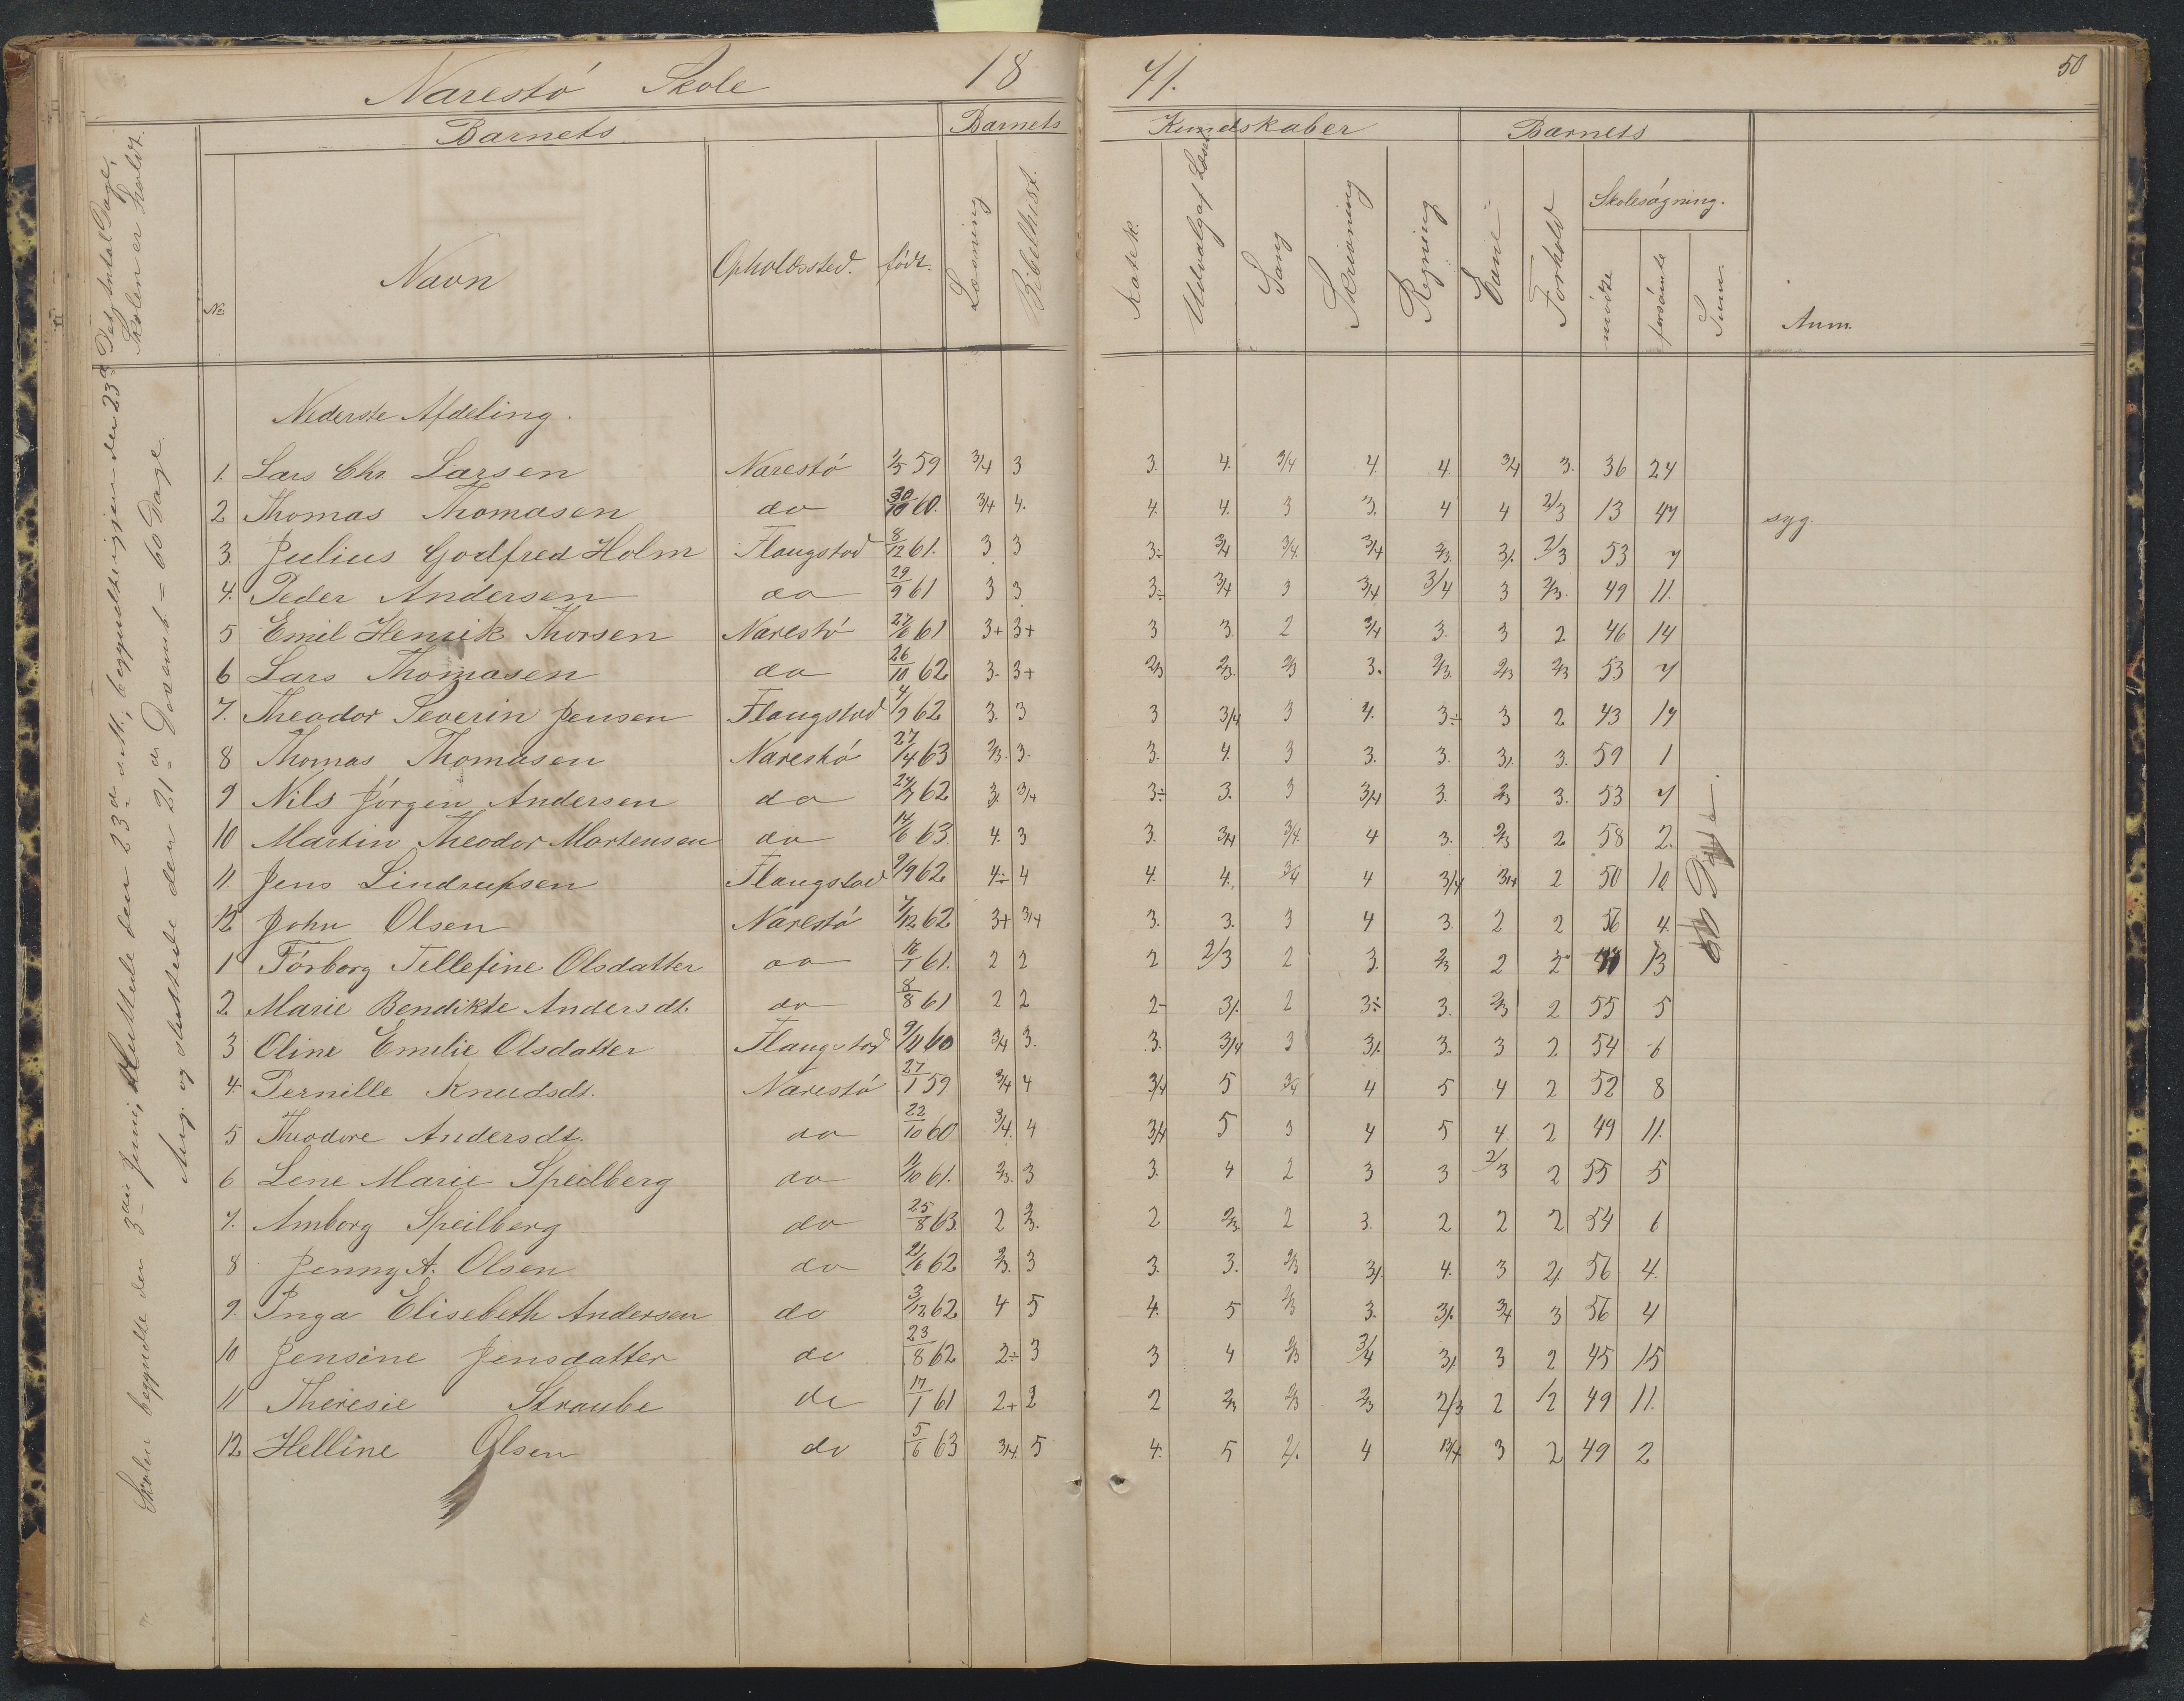 Narestö Skole 18 71. 50
Barnets Barnets Kundskaber Barnets
No. Navn Opholdssted. født. Læsning Bibelhist. Katek. Udvalg af Læseb. Sang Skrivning Regning Evne Forhold Skolesögning. mödte forsömte Sum Anm.
Det hele Antal Dage,
Skolen er holdt.
Skolen begyndte den 3die Juni, sluttede den 23de s. M., begyndte igjen den 23de
Aug. og sluttede den 21de Decembr = 60 Dage.
Nederste Afdeling.
1. Lars Chr. Larsen Narestö 59 3/4 3 3. 4. 3/4 4. 4. 3/4 3. 36 24
2 Thomas Thomasen do 30/10 60. 3/4 4. 4. 4. 3 3. 4 4 2/3 13 47 syg.
3. Julius Godfred Holm Flaugstad 8/12 61. 3 3 3÷ 3/4 3/4. 3/4 2/3. 3/. 2/3 53 7
4. Peder Andersen do 29/9 61 3 3 3÷ 3/4 3 3/4 3/4 3 2/3. 49 11.
5 Emil Henrik Thorsen Narestö 27/6 61 3+ 3+ 3 3. 2 3/4 3. 3 2 46 14
6 Lars Thomasen do 26/10 62 3. 3+ 2/3 2/3. 2/3 3. 2/3. 2/3 2/3 53 7
7. Theodor Severin Jensen Flaugstad 4/9 62 3. 3 3 3/4 3 4. 3÷ 3 2 43 17
8 Thomas Thomasen Narestö 27/4 63 2/3. 3. 3. 4. 3 3. 3. 3/. 3. 59 1
9 Nils Jörgen Andersen do 24/7 62 3/. 3/4 3÷ 3. 3 3/4 3. 2/3 3. 53 7
10 Martin Theodor Mortensen do 17/6 63 4. 3 3. 3/4 3/4. 4 3. 2/3 2 58 2.
11. Jens Lindrupsen Flaugstad 9/9 62 4÷ 4 4. 4. 3/4 4 3/4 3/4 2 50 10
12 John Olsen Narestö 7/12 62 3+ 3/4 3. 3. 3 4 3. 2 2 56 4.
1 Törborg Tellefine Olsdatter do 18/1 61. 2 2 2 2/3 2 3. 2/3 2 2 13
2 Marie Bendikte Andersdt. do 8/8 61 2 2 2- 3/. 2 3÷ 3. 2/3 2 55 5
3 Oline Emilie Olsdatter Flaugstad 9/11 60 3/4 3. 3. 3/4 3 3/. 3. 3 2 54 6
4. Pernille Knudsdt. Narestö 27/1 59 3/4 4 3/4 5 3/4 4 5 4 2 52 8
5 Theodore Andersdt. do 22/10 60 3/4. 4 3/4 5 3 4 5 4 2 49 11.
6 Lene Marie Speilberg do 11/10 61. 2/3. 3 3. 4 2 3 3 2/3 2 55 5
7. Amborg Speilberg do 25/8 63 2 2/3. 2 2/3 2 3. 2 2 2 54 6
8 Jenny A. Olsen do 21/6 62 2/3. 3 3. 3. 2/3 3/. 4. 3 2/. 56 4.
9. Inga Elisebeth Andersen do 3/12 62 4 5 4. 5 2/3 3. 3/. 3/4 3 56 4
10 Jensine Jensdatter do 23/8 62 2÷ 3 3 4 2/3 3/4 3/. 3 2 45 15
11 Theresie Straube do 17/1 61 2+ 2 2 2/3 2/3 2/3 2/3 2 1/2 49 11.
12 Helline Olsen do 5/6 63 3/4. 5 4. 5 2/. 4 3/4 3 2 49 2
60 Dage